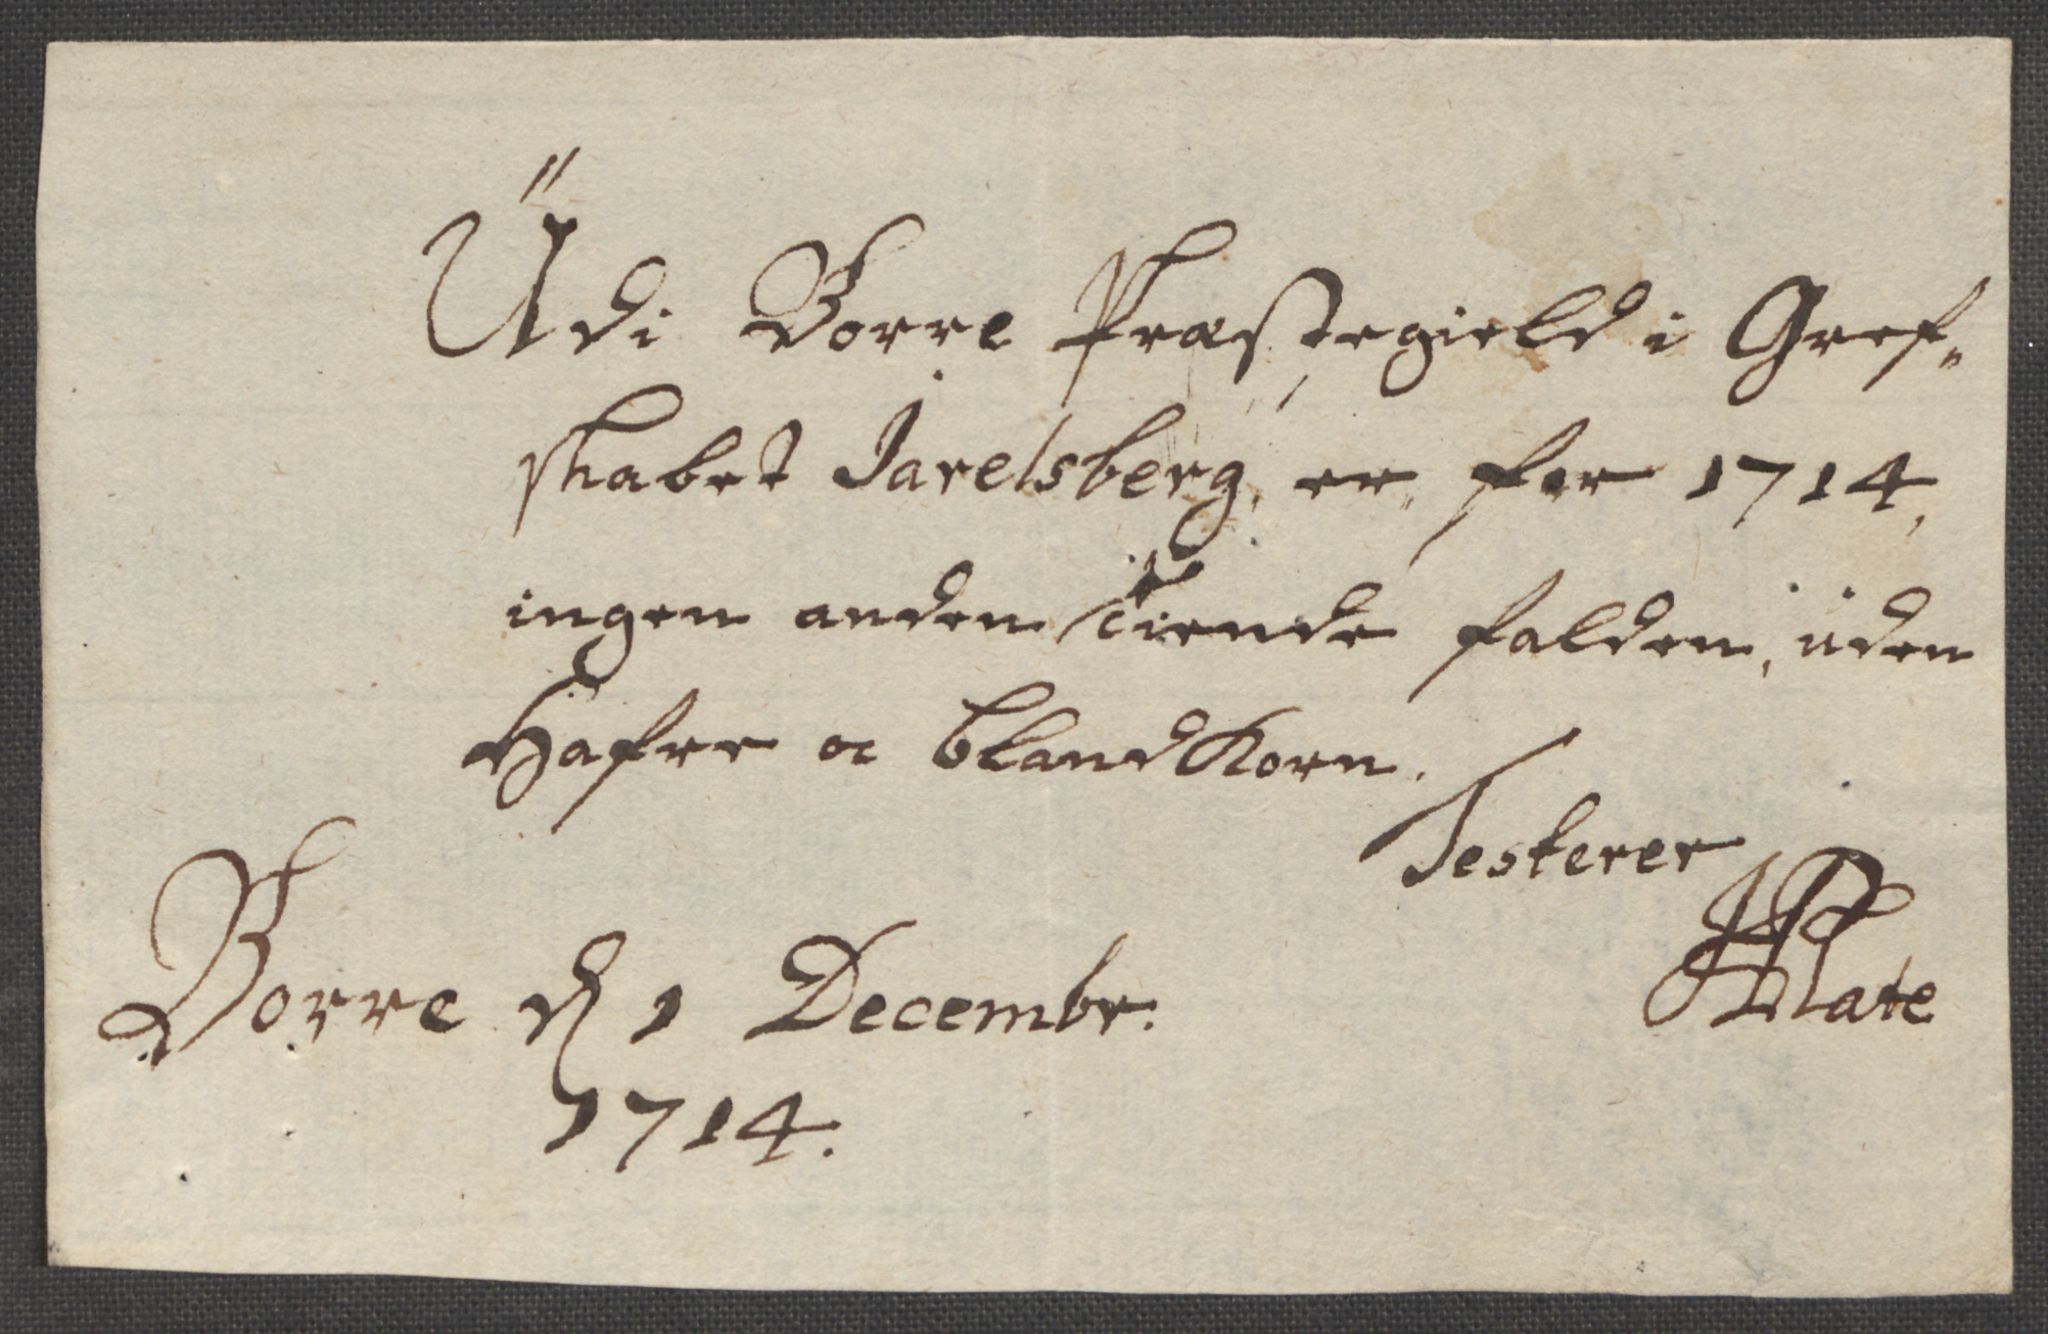 Üdi Borre Præstegield i Gref-
skabet Jarelsberg, er for 1714,
ingen anden Tiende falden, üden
Hafre oc blandKorn.
Testerer
Plate
Borre d 1 Decembr.
1714.